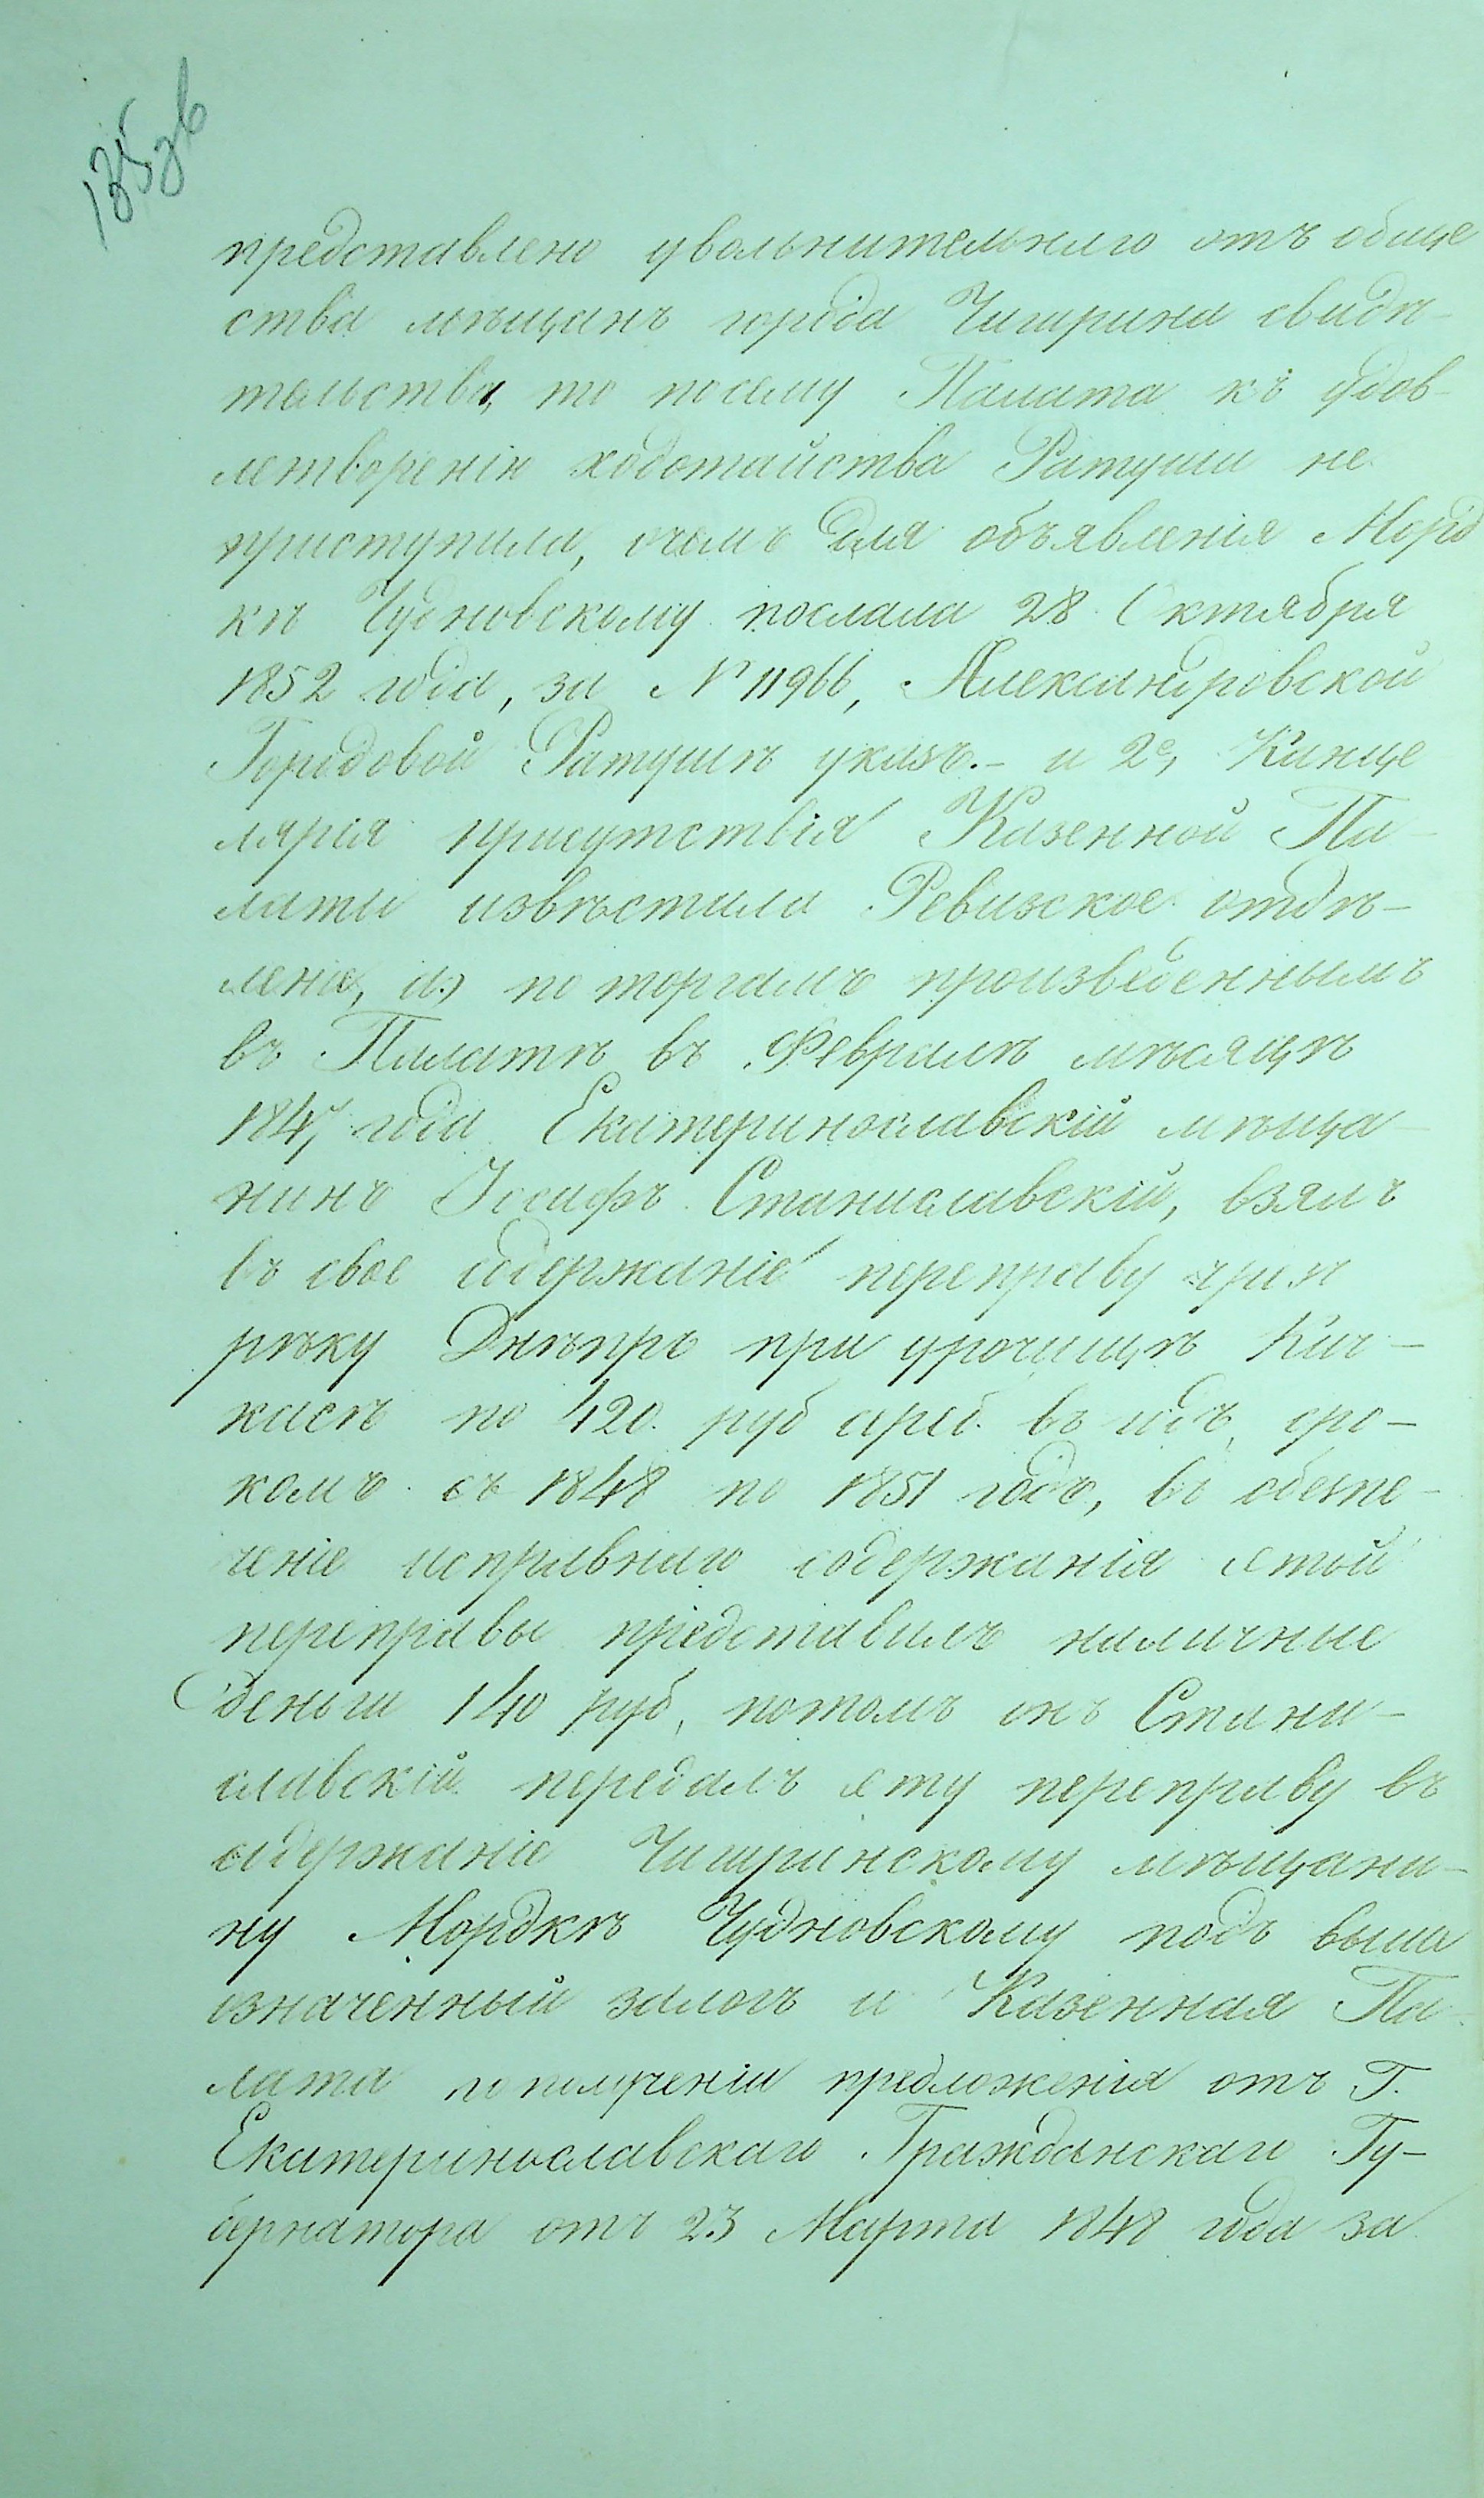 135 зв
представлено увольнительнаго отъ обще
ства мѣщанъ города Чигрина свидѣ-
тельства, то посему Палата къ удов-
летворенію ходотайства Ратуши не
приступила, очемъ для объявленія Морд
кѣ Чудновскому послала 28 Октября
1852 года, за № 11966, Александровской
Городовой Ратушѣ указъ.- и 2е, Канце
лярія присутствія Казенной Па-
латы извѣстила Ревизское отдѣ-
леніе, а.) по торгамъ произведеннымъ
въ Палатѣ въ Февралѣ мѣсяцѣ
1847 года Екатеринославскій мѣща-
нинъ Іосифъ Станиславскій, взялъ
въ свое содержаніе переправу чрезъ
рѣку Днѣпръ при урочищѣ Кич-
касѣ по 420 руб сереб. въ годъ, сро-
комъ съ 1848 по 1851 годъ, въ обезпе-
ченіе исправнаго содержанія етой
переправы представилъ наличные
деньги 140 руб, потомъ онъ Стани-
славскій передалъ ету переправу въ
содержаніе Чигринскому мѣщани-
ну Мордкѣ Чудновскому подъ выше
означенный залогъ и Казенная Па-
лата по полученіи предложенія отъ Г.
Екатеринославскаго Гражданскаго Гу-
бернатора отъ 23 Марта 1848 года за